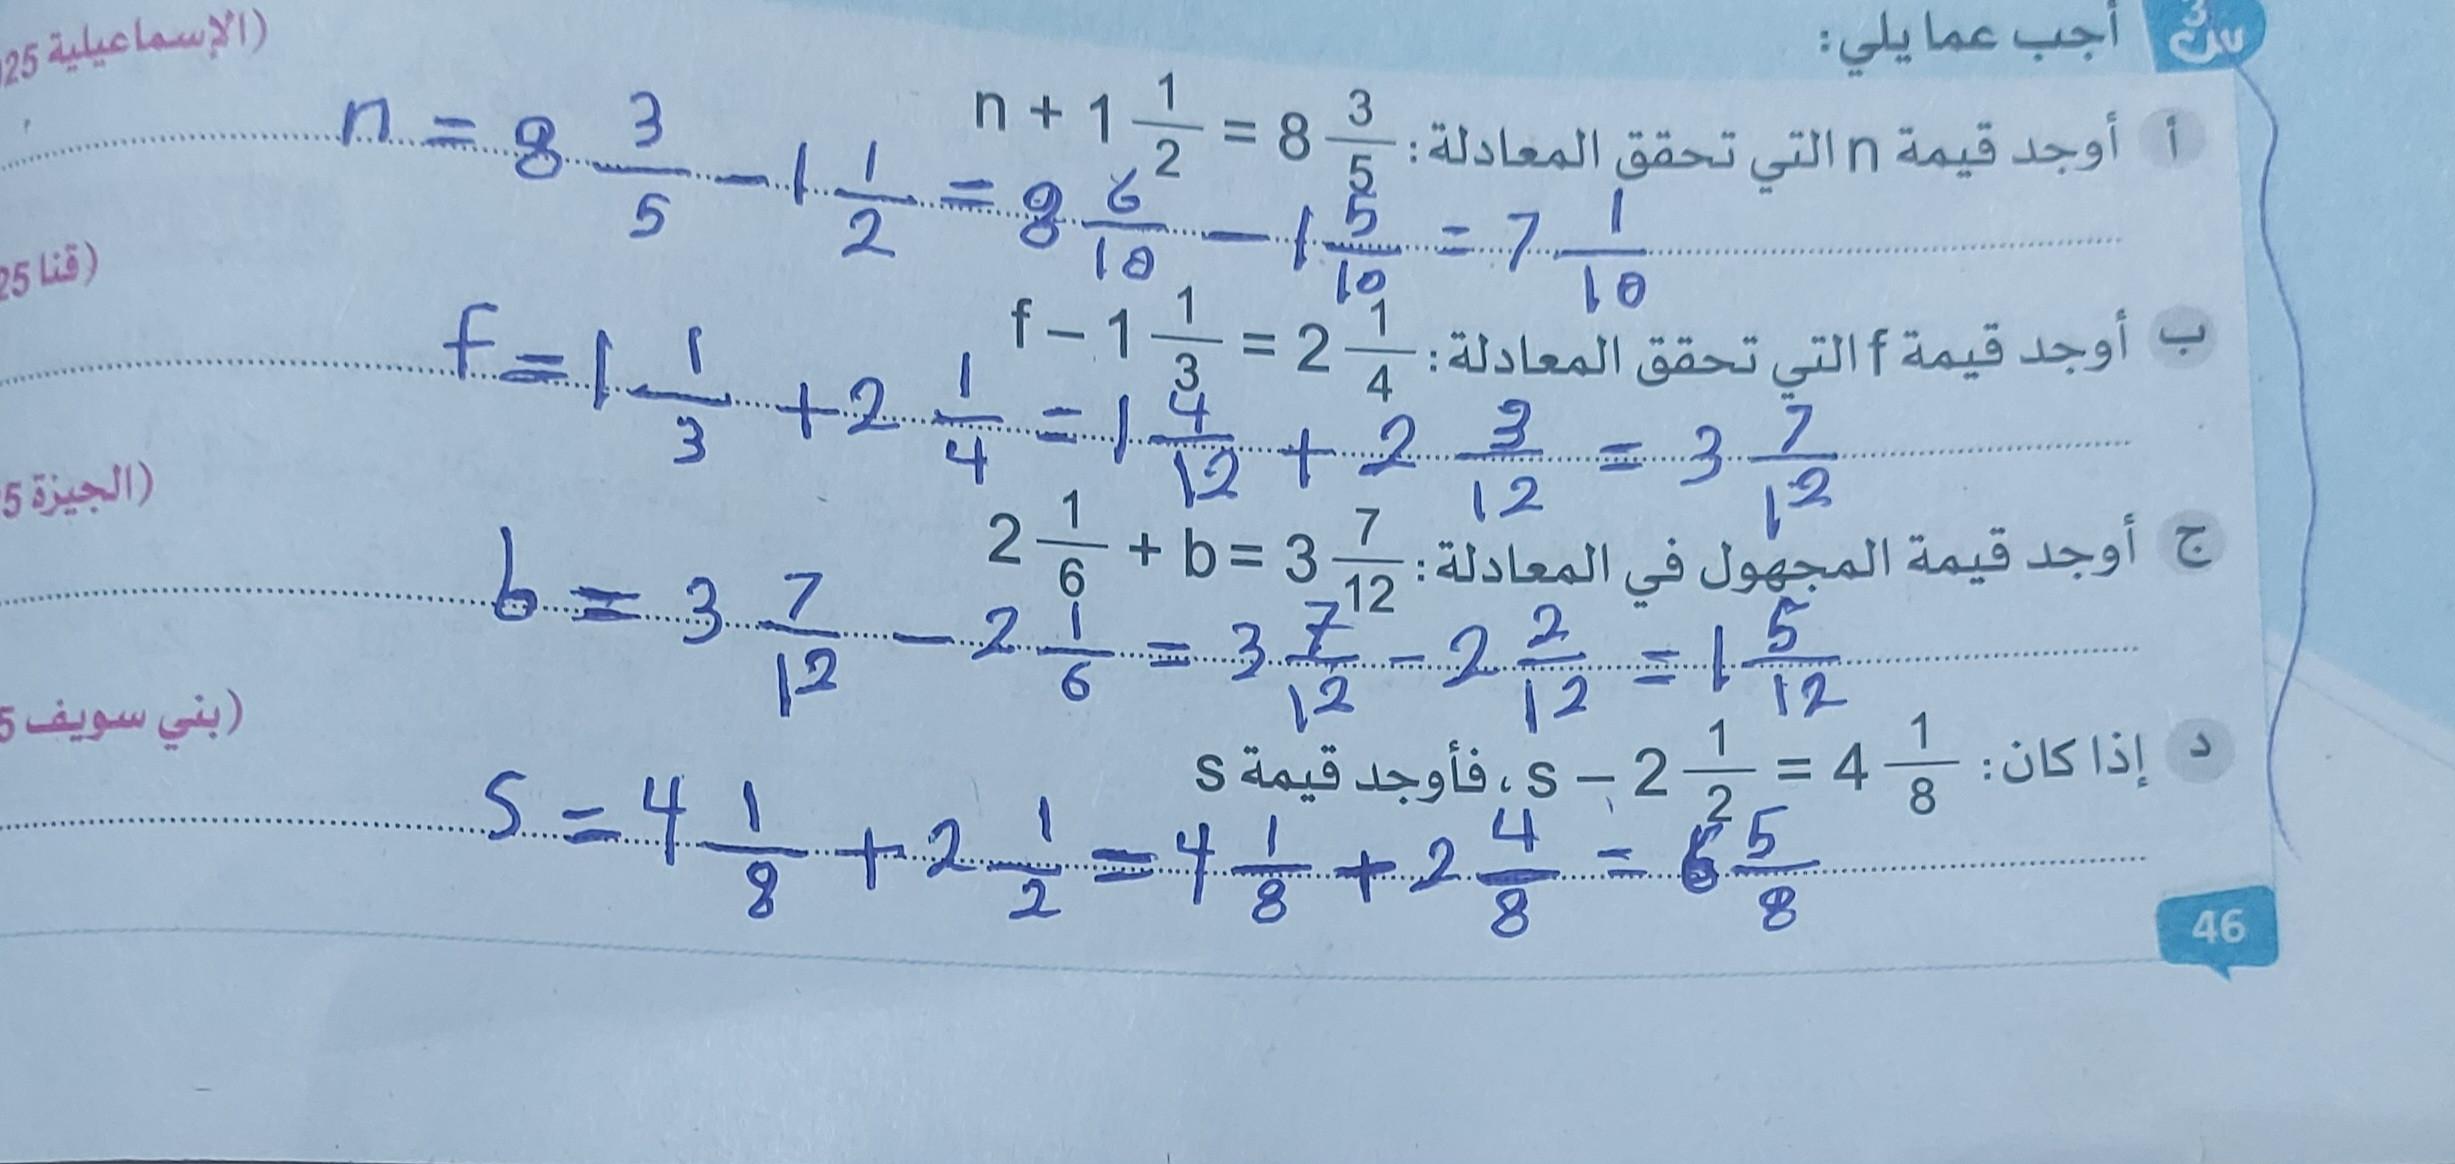 س3 أجب عما يلي:
أ أوجد قيمة n التي تحقق المعادلة: n + 1 1/2 = 8 3/5 (الإسماعيلية 25
n = 8 3/5 - 1 1/2 = 8 6/10 - 1 5/10 = 7 1/10
ب أوجد قيمة f التي تحقق المعادلة: f – 1 1/3 = 2 1/4 (قنا 25
f = 1 1/3 + 2 1/4 = 1 4/12 + 2 3/12 = 3 7/12
ج أوجد قيمة المجهول في المعادلة: 2 1/6 + b = 3 7/12 (الجيزة 5
b = 3 7/12 - 2 1/6 = 3 7/12 - 2 2/12 = 1 5/12
د إذا كان: s – 2 1/2 = 4 1/8 ، فأوجد قيمة s (بني سويف 5
s = 4 1/8 + 2 1/2 = 4 1/8 + 2 4/8 = 6 5/8
46